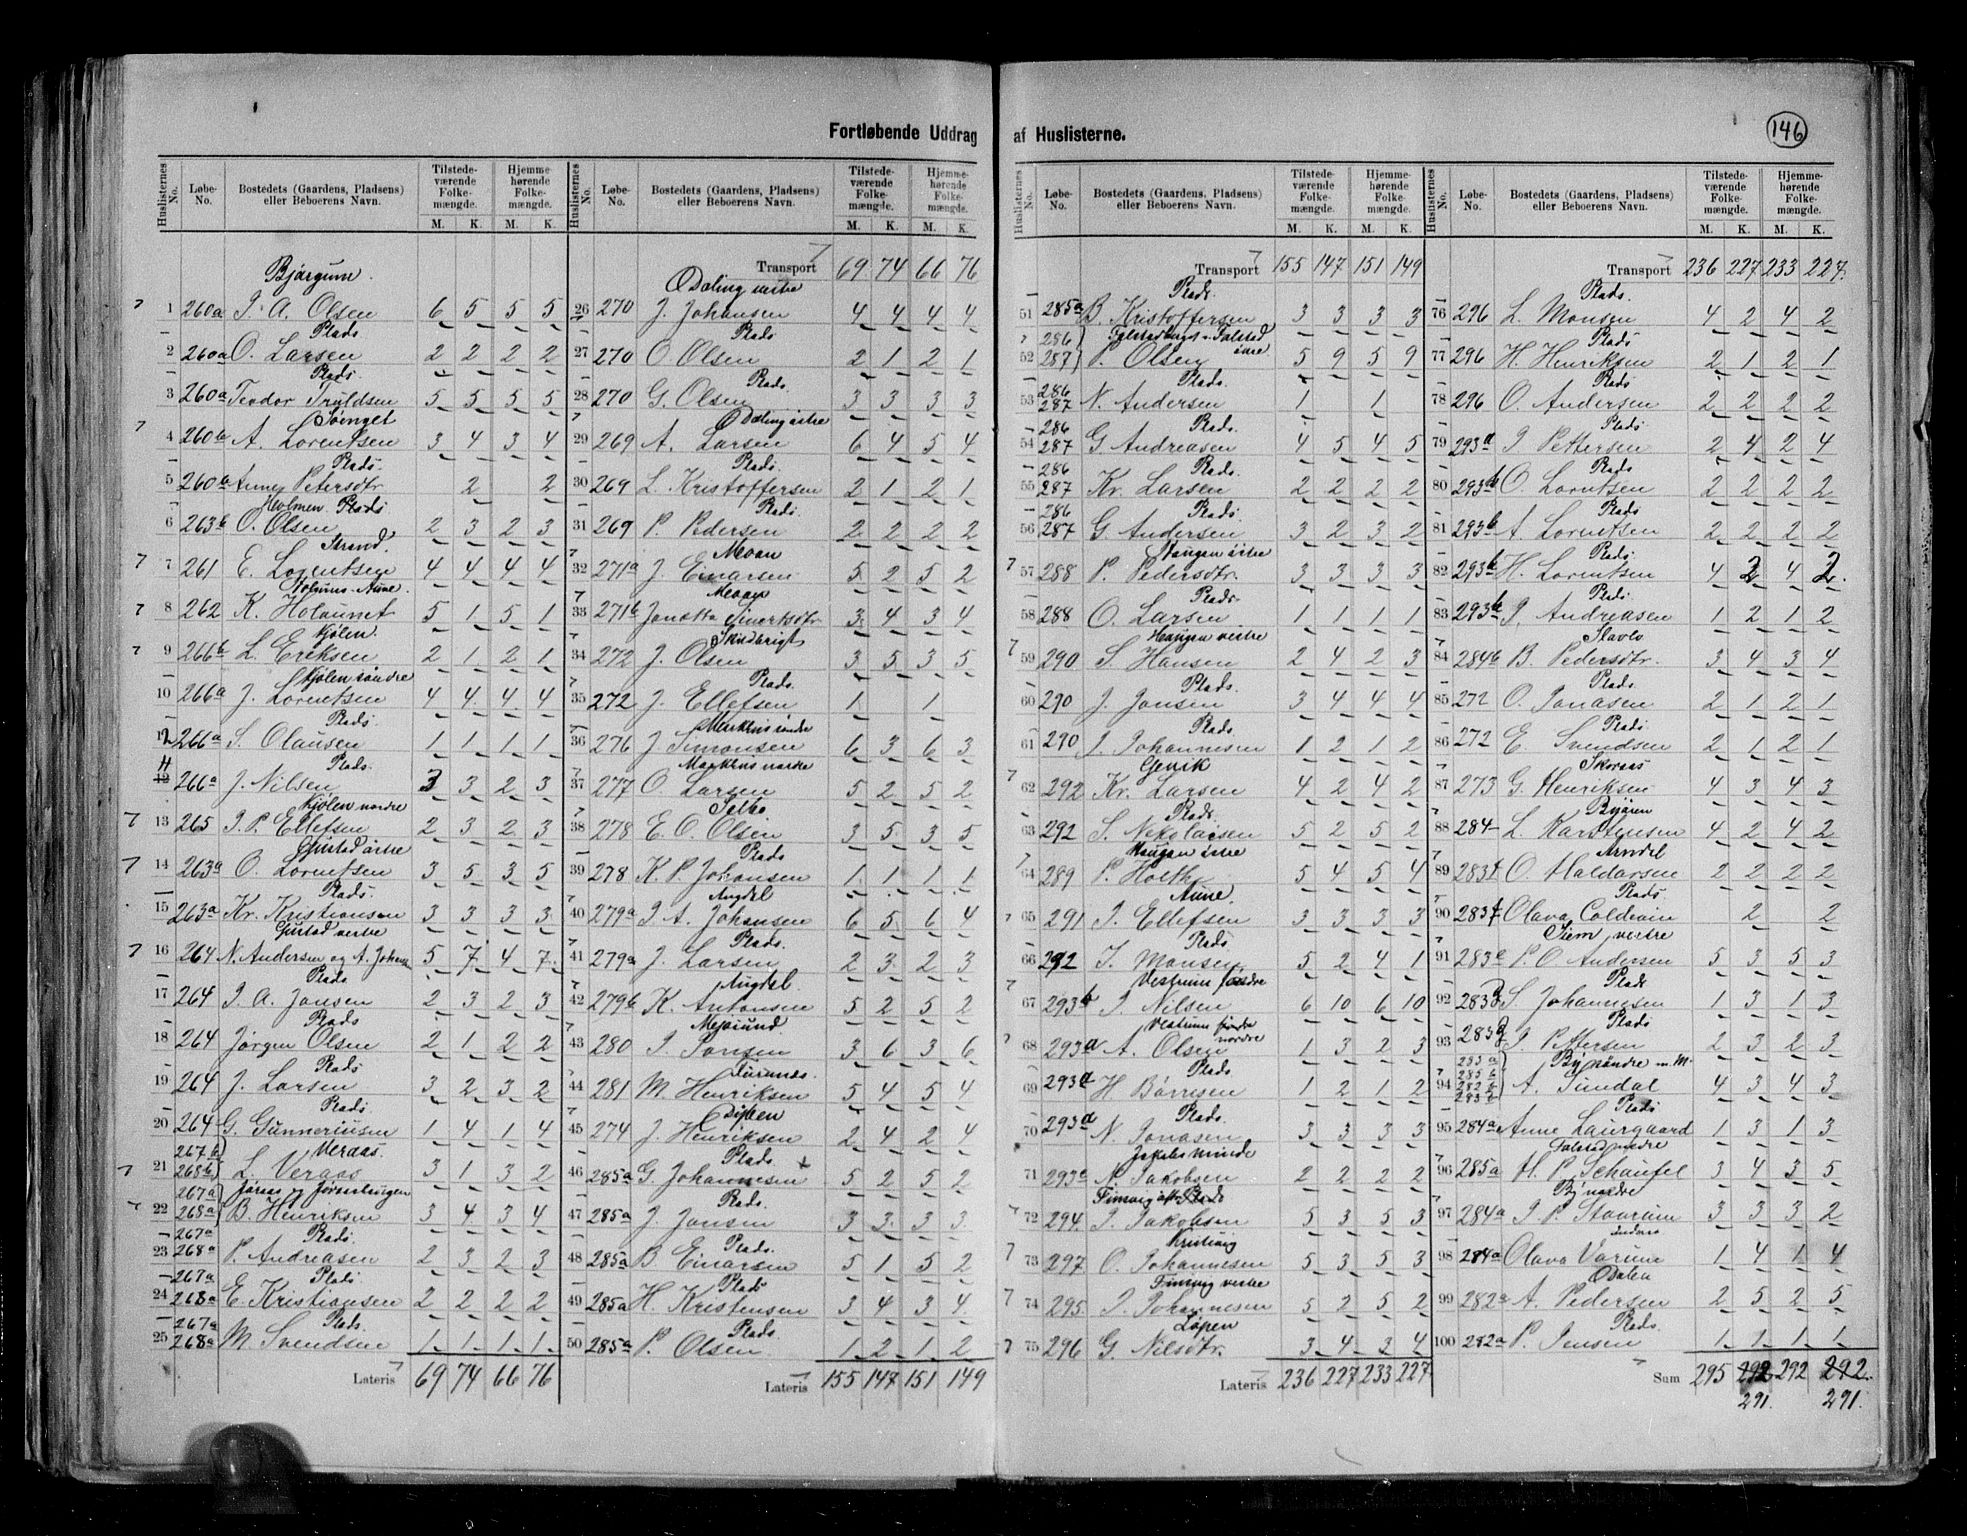 Fortløbende Uddrag af Huslisterne.
146
Huslisternes No. Løbe-No. Bostedets (Gaardens, Pladsens) eller Beboerens Navn. Tilstede-værende Folke-mængde. M. K. Hjemme-hørende Folke-mængde. M. K.
Bjørgum
1 260a P. A. Olsen 6 5 5 5
Plads
2 260a O. Larsen 2 2 2 2
Plads
3 260a Teodor Truldsen 5 5 5 5
4 260b A. Lorentsen 3 4 3 4
Plads
5 260a Anne Petersdtr 2 2
Holmen Plads
6 263b O. Olsen 2 3 2 3
Strand.
7 7 261 E. Lorentsen 4 4 4 4
7 8 262 K. Holaunet 5 1 5 1
Kjølen
7 9 266b L. Eriksen 2 1 2 1
Kjølen søndre
10 266a J. Lorentsen 4 4 4 4
Plads
12 266a S. Olausen 1 1 1 1
Plads.
11 266a J. Nilsen 3 3 2 3
Kjølen nordre
7 13 265 P. P. Ellefsen 2 3 2 3
Gustad østre
7 14 263a O. Lorentsen 3 5 3 5
Plads
15 263a Kr. Kristiansen 3 3 3 3
Gustad vestre
7 16 264 N. Andersen og A. Johans 5 7 4 7
Plads
17 264 P. A. Jansen 2 3 2 3
Plads
18 264 Jørgen Olsen 2 1 2 2
Plads
19 264 J. Larsen 3 2 3 2
Plads
20 264 G. Gunneriusen 1 4 1 4
267b Meraas.
7 21 268b L. Veraas 3 1 3 2
267a
22 268a B. Henriksen 3 4 3 4
267a Plads
23 268a P. Andreasen 2 3 2 3
267a Plads
24 268a E. Kristiansen 2 2 2 2
267a Plads
25 268a M. Svendsen 1 1 1 1
Lateris 69 74 66 76
Huslisternes No. Løbe-No. Bostedets (Gaardens, Pladsens) eller Beboerens Navn. Tilstede-værende Folke-mængde. M. K. Hjemme-hørende Folke-mængde. M. K.
Transport 69 74 66 76
Ødaling vestre
26 270 J. Johansen 4 4 4 4
Plads
27 270 O. Olsen 2 1 2 1
Plads
28 270 G. Olsen 3 3 3 3
Ødaling østre
29 269 A. Larsen 6 4 5 4
Plads
30 269 L. Kristoffersen 2 1 2 1
Plads
31 269 P. Pedersen 2 2 2 2
Moan
32 271a J. Einarsen 5 2 5 2
Moan
33 271b Jonetta Sivertsdtr 3 4 3 4
Skildbrigt
34 272 J. Olsen 3 5 3 5
Plads
35 272 J. Ellefsen 1 1
Marken søndre
36 276 J. Simonsen 6 3 6 3
Marken nordre
37 277 O. Larsen 5 2 5 2
38 278 E. O. Olsen 3 5 3 5
Plads
39 278 K. P. Johansen 1 1 1 1
Angdel
40 279a P. A. Johansen 6 5 6 4
Plads.
41 279a J. Larsen 2 3 2 3
Angdel.
42 279b K. Antonsen 5 2 5 2
43 280 P. Jonsen 3 6 3 6
44 281 M. Henriksen 5 4 5 4
45 274 J. Henriksen 2 4 2 4
Plads
46 285a G. Johannesen 5 2 5 2
Plads.
47 285a J. Jonsen 3 3 3 3
Plads.
48 285a B. Einarsen 5 1 5 2
Plads
49 285a H. Kristensen 3 4 3 4
Plads
50 285a P. Olsen 1 2 1 2
Lateris 155 147 151 149
Huslisternes No. Løbe-No. Bostedets (Gaardens, Pladsens) eller Beboerens Navn. Tilstede-værende Folke-mængde. M. K. Hjemme-hørende Folke-mængde. M. K.
Transport 155 147 151 149
Plads
51 285a B. Kristoffersen 3 3 3 3
286
52 287 P. Olsen 5 9 5 9
286 Plads
53 287 N. Andersen 1 1
286 Plads.
54 287 G. Andreasen 4 5 4 5
286 Plads.
55 287 Kr. Larsen 2 2 2 2
286 Plads
56 287 G. Andersen 3 2 3 2
Haugen østre
7 57 288 P. Pedersdtr. 3 3 3 3
Plads
58 288 O. Larsen 1 1 1 1
Haugen vestre
7 59 290 S. Hansen 2 4 2 3
Plads.
60 290 J. Jonsen 3 4 4 4
Plads.
61 290 P. Johannesen 1 2 1 2
Gjevik
7 62 292 Kr. Larsen 4 2 4 2
Plads.
63 292 S. Nikolaisen 5 2 5 2
Haugen østre
7 64 289 P. Holth 5 4 5 4
Aune.
7 65 291 P. Ellefsen 3 3 3 3
Plads
66 292 T. Monsen 5 2 4 1
Vestrum søndre
7 67 293b P. Nilsen 6 10 6 10
nordre
7 68 293a A. Olsen 1 3 2 3
Plads
69 293a H. Børresen 1 2 1 2
Plads.
70 293a N. Jonasen 3 3 3 3
Jakobsminde
71 293a N. Jakobsen 2 2 2 2
7 72 294 P. Jakobsen 5 3 5 3
7 73 297 O. Johannesen 5 3 5 3
Finsvig vestre
7 74 295 P. Johannesen 5 2 5 2
Løpen
7 75 296 G. Nilsdtr. 3 4 3 4
Lateris 236 227 233 227
Huslisternes No. Løbe-No. Bostedets (Gaardens, Pladsens) eller Beboerens Navn. Tilstede-værende Folke-mængde. M. K. Hjemme-hørende Folke-mængde. M. K.
Transport 236 227 233 227
Plads
76 296 L. Monsen 4 2 4 2
Plads
77 296 H. Henriksen 2 1 2 1
Plads
78 296 O. Andersen 2 2 2 2
Plads
79 293a P. Pettersen 2 4 2 4
Plads
80 293b O. Lorentsen 2 2 2 2
Plads
81 293b A. Lorentsen 2 2 2 2
Plads
82 293b H. Lorentsen 4 2 4 2
Plads
83 293b P. Andreasen 1 2 1 2
84 284b B. Pedersdtr. 3 4 3 4
Plads
85 272 O. Jonasen 2 1 2 1
Plads
86 272 E. Svendsen 2 1 2 1
87 273 G. Henriksen 4 3 4 3
88 284 L. Karstensen 4 2 4 2
Arndel
89 283f O. Haldorsen 2 2 2 2
Plads
90 283f Olava Coldevin 2 2
Siem vestre
91 283e P. O. Andersen 5 3 5 3
Plads
92 283 S. Johannesen 1 3 1 3
Plads
93 283 P. Pettersen 2 3 2 3
283a By søndre m. M.
285b
94 282b A. Sundal 4 3 4 3
283b
Plads
95 284a Anne Laurgaard 1 3 1 3
Falstad nedre
96 285a H. P. Schaufel 3 4 3 5
By nordre
97 284a P. P. Staurum 3 3 3 2
98 284a Olava Vorum 1 4 1 4
99 282a A. Pedersen 2 5 2 5
Plads.
100 282a P. Jensen 1 1 1 1
Sum 295 292 292 292
291. 291.